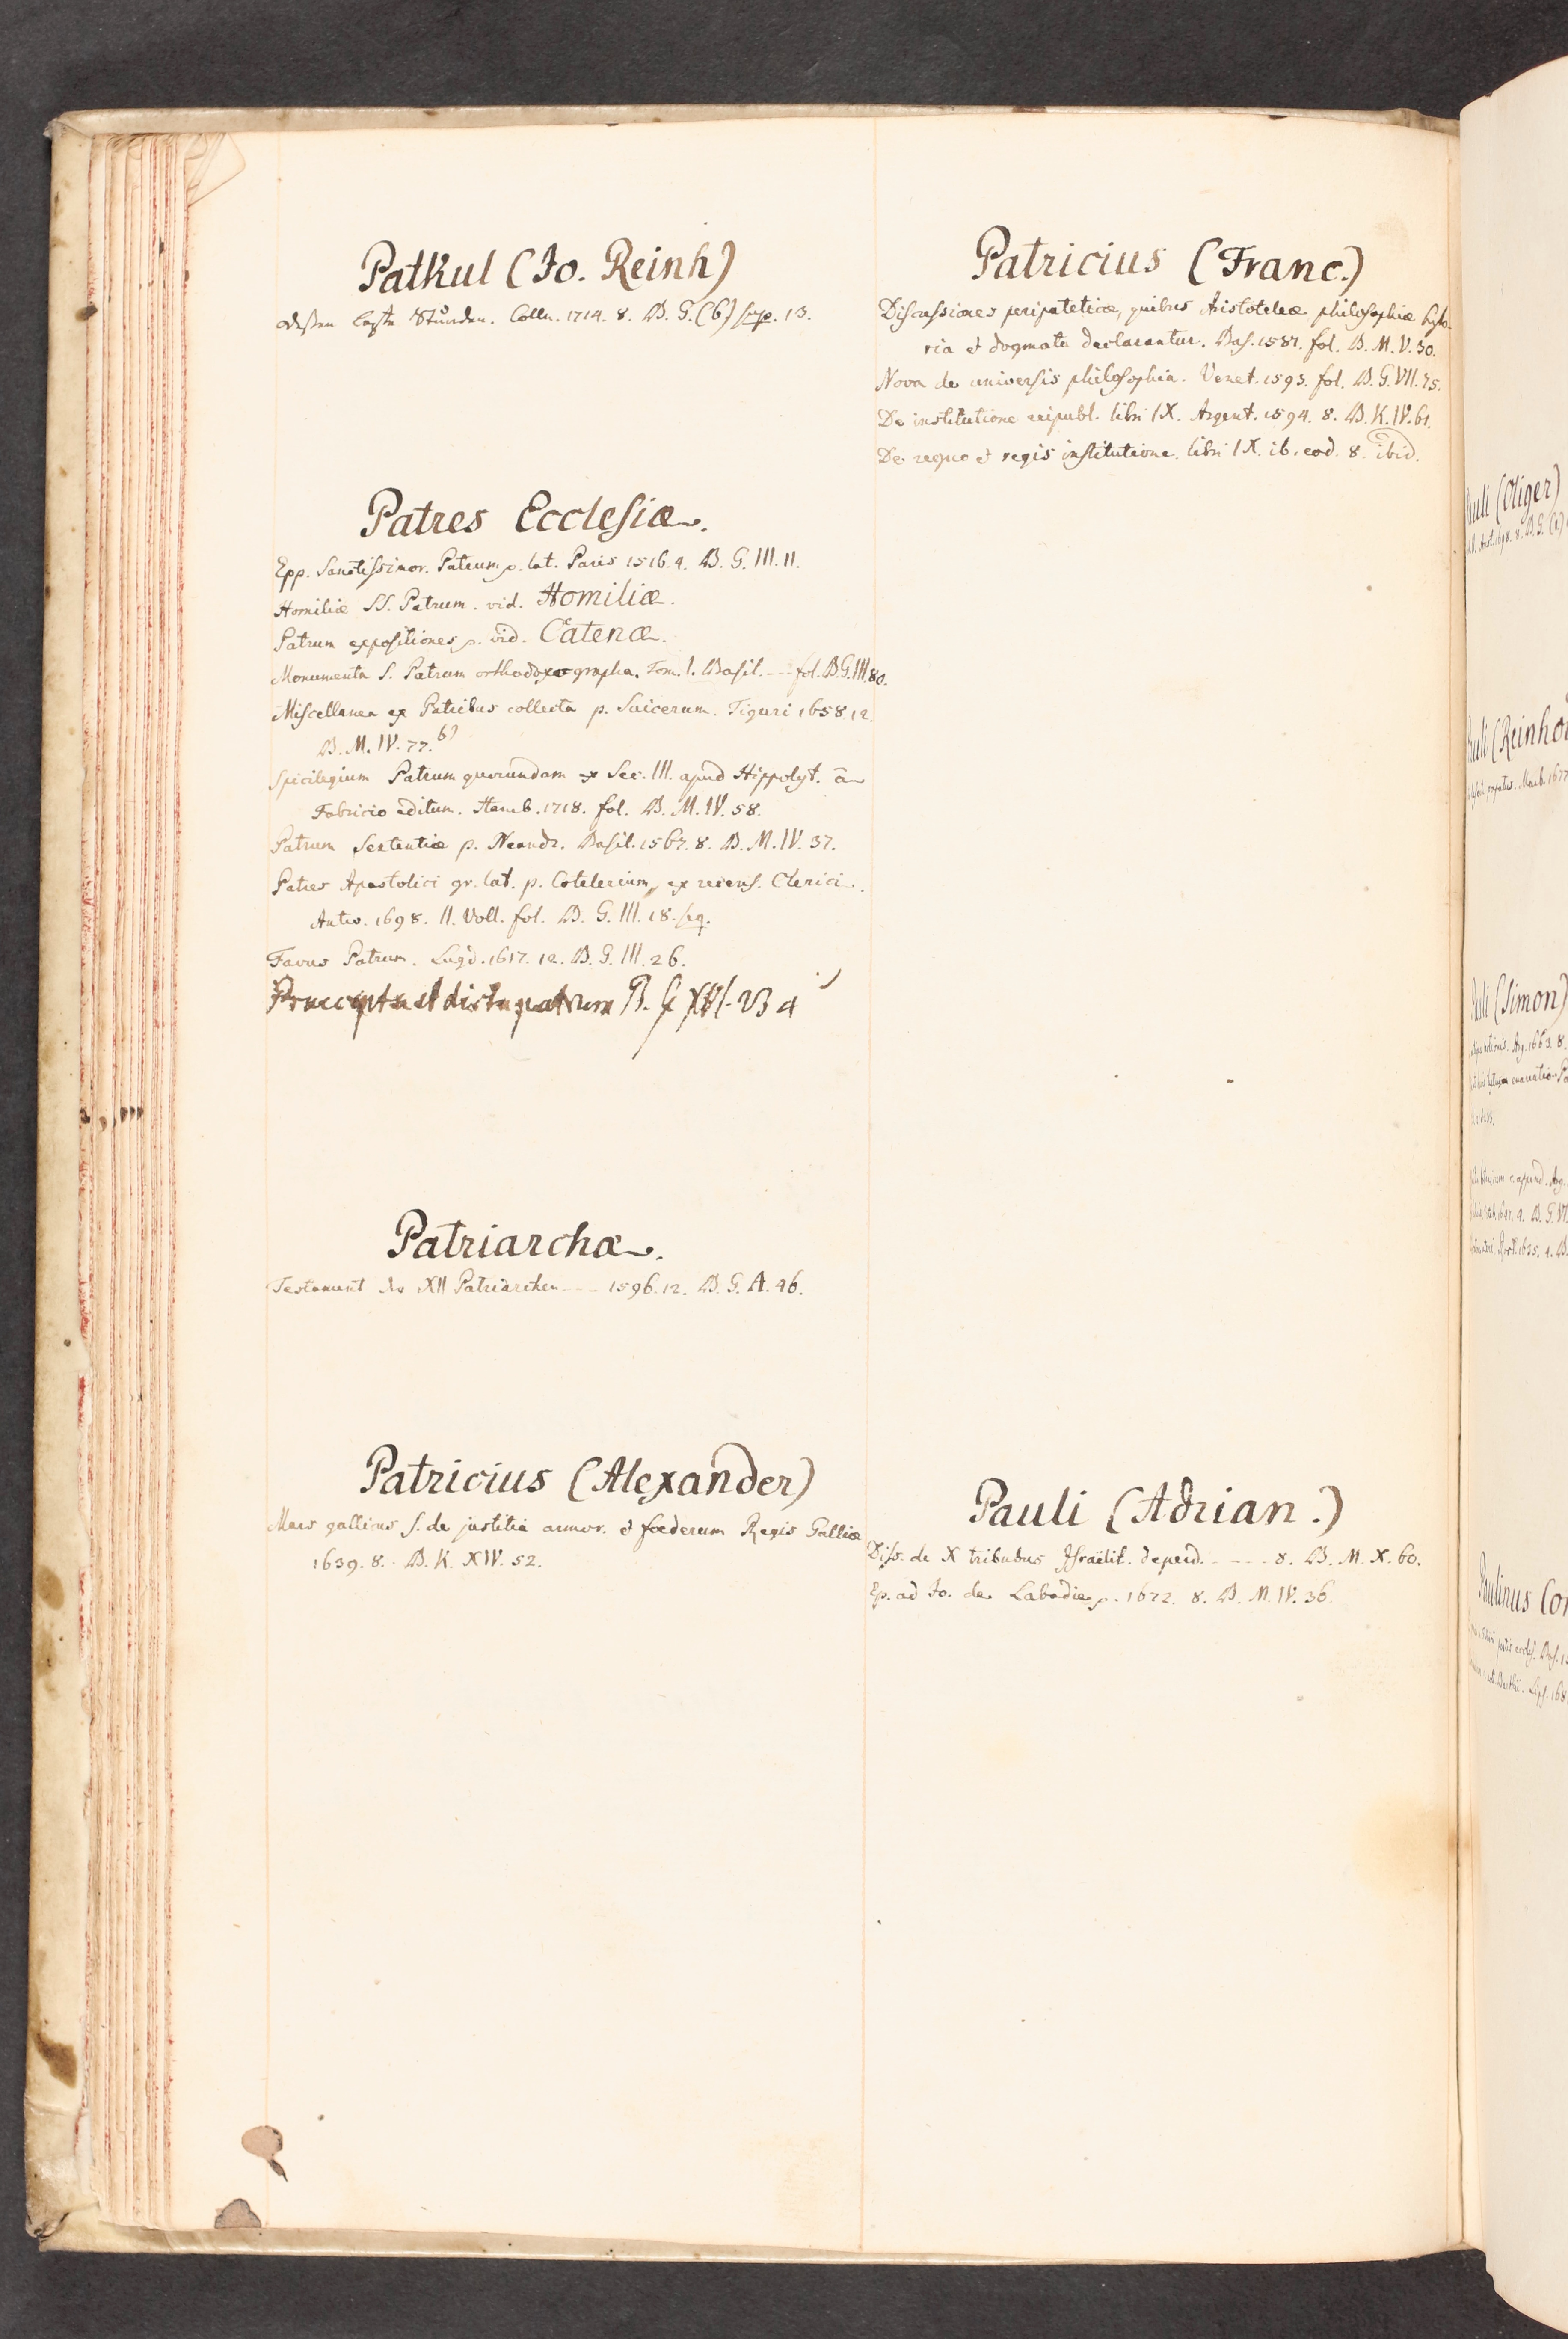 Patkul (Jo. Reinh)
deßen letzte Stunden. Cölln. 1714. 8. B. G. (6) sup. 13.
Patres Ecclesiæ.
Epp. Sanctissimor. Patrum p. lat. Paris 1516. 4. B. G. III. 11.
Homiliæ SS. Patrum. vid. Homiliæ.
Patrum expositiones p. vid. Catenæ.
Monumenta S. Patrum orthodoxographa. Tom. I. Basil. --- fol. B. G. III. 80.
Miscellanea ex Patribus collecta p. Suicerum. Tiguri 1658. 12.
B. M. IV. 77. b)
Spicilegium Patrum quorundam ex Sec. III. apud Hippolyt. a
Fabricio editum. Hamb. 1718. fol. B. M. IV. 58.
Patrum Sententiæ p. Neandr. Basil. 1567. 8. B. M. IV. 37.
Patres Apostolici gr. lat. p. Cotelerium, ex recens. Clerici.
Antw. 1698. II. Voll. fol. B. G. III. 18. seq.
Favus Patrum. Lugd. 1617. 12. B. G. III. 26.
Præcepta et dicta patrum B. G XVI. 23 4
Patriarchæ.
Testament der XII Patriarchen --- 1596. 12. B. G. A. 46.
Patricius (Alexander)
Mars gallicus s. de justitia armor. et fœderum Regis Galliæ
1639. 8. B. K. XIV. 52.
Patricius (Franc.)
Discussiones peripateticæ, quibus Aristoteleæ philosophiæ histo-
ria et dogmata declarantur. Bas. 1581. fol. B. M. V. 30.
Nova de universis philosophia. Venet. 1593. fol. B. G. VII. 75.
De institutione reipubl. libri IX. Argent. 1594. 8. B. K. IV. 61.
De regno et regis institutione. libri IX. ib. eod. 8. ibid.
Pauli (Adrian.)
Diss. de X tribubus Israëlit. deperd. ---- 8. B. M. X. 60.
Ep. ad Jo. de Labadie p. 1672. 8. B. M. IV. 36.
(Oliger)
(Simon)